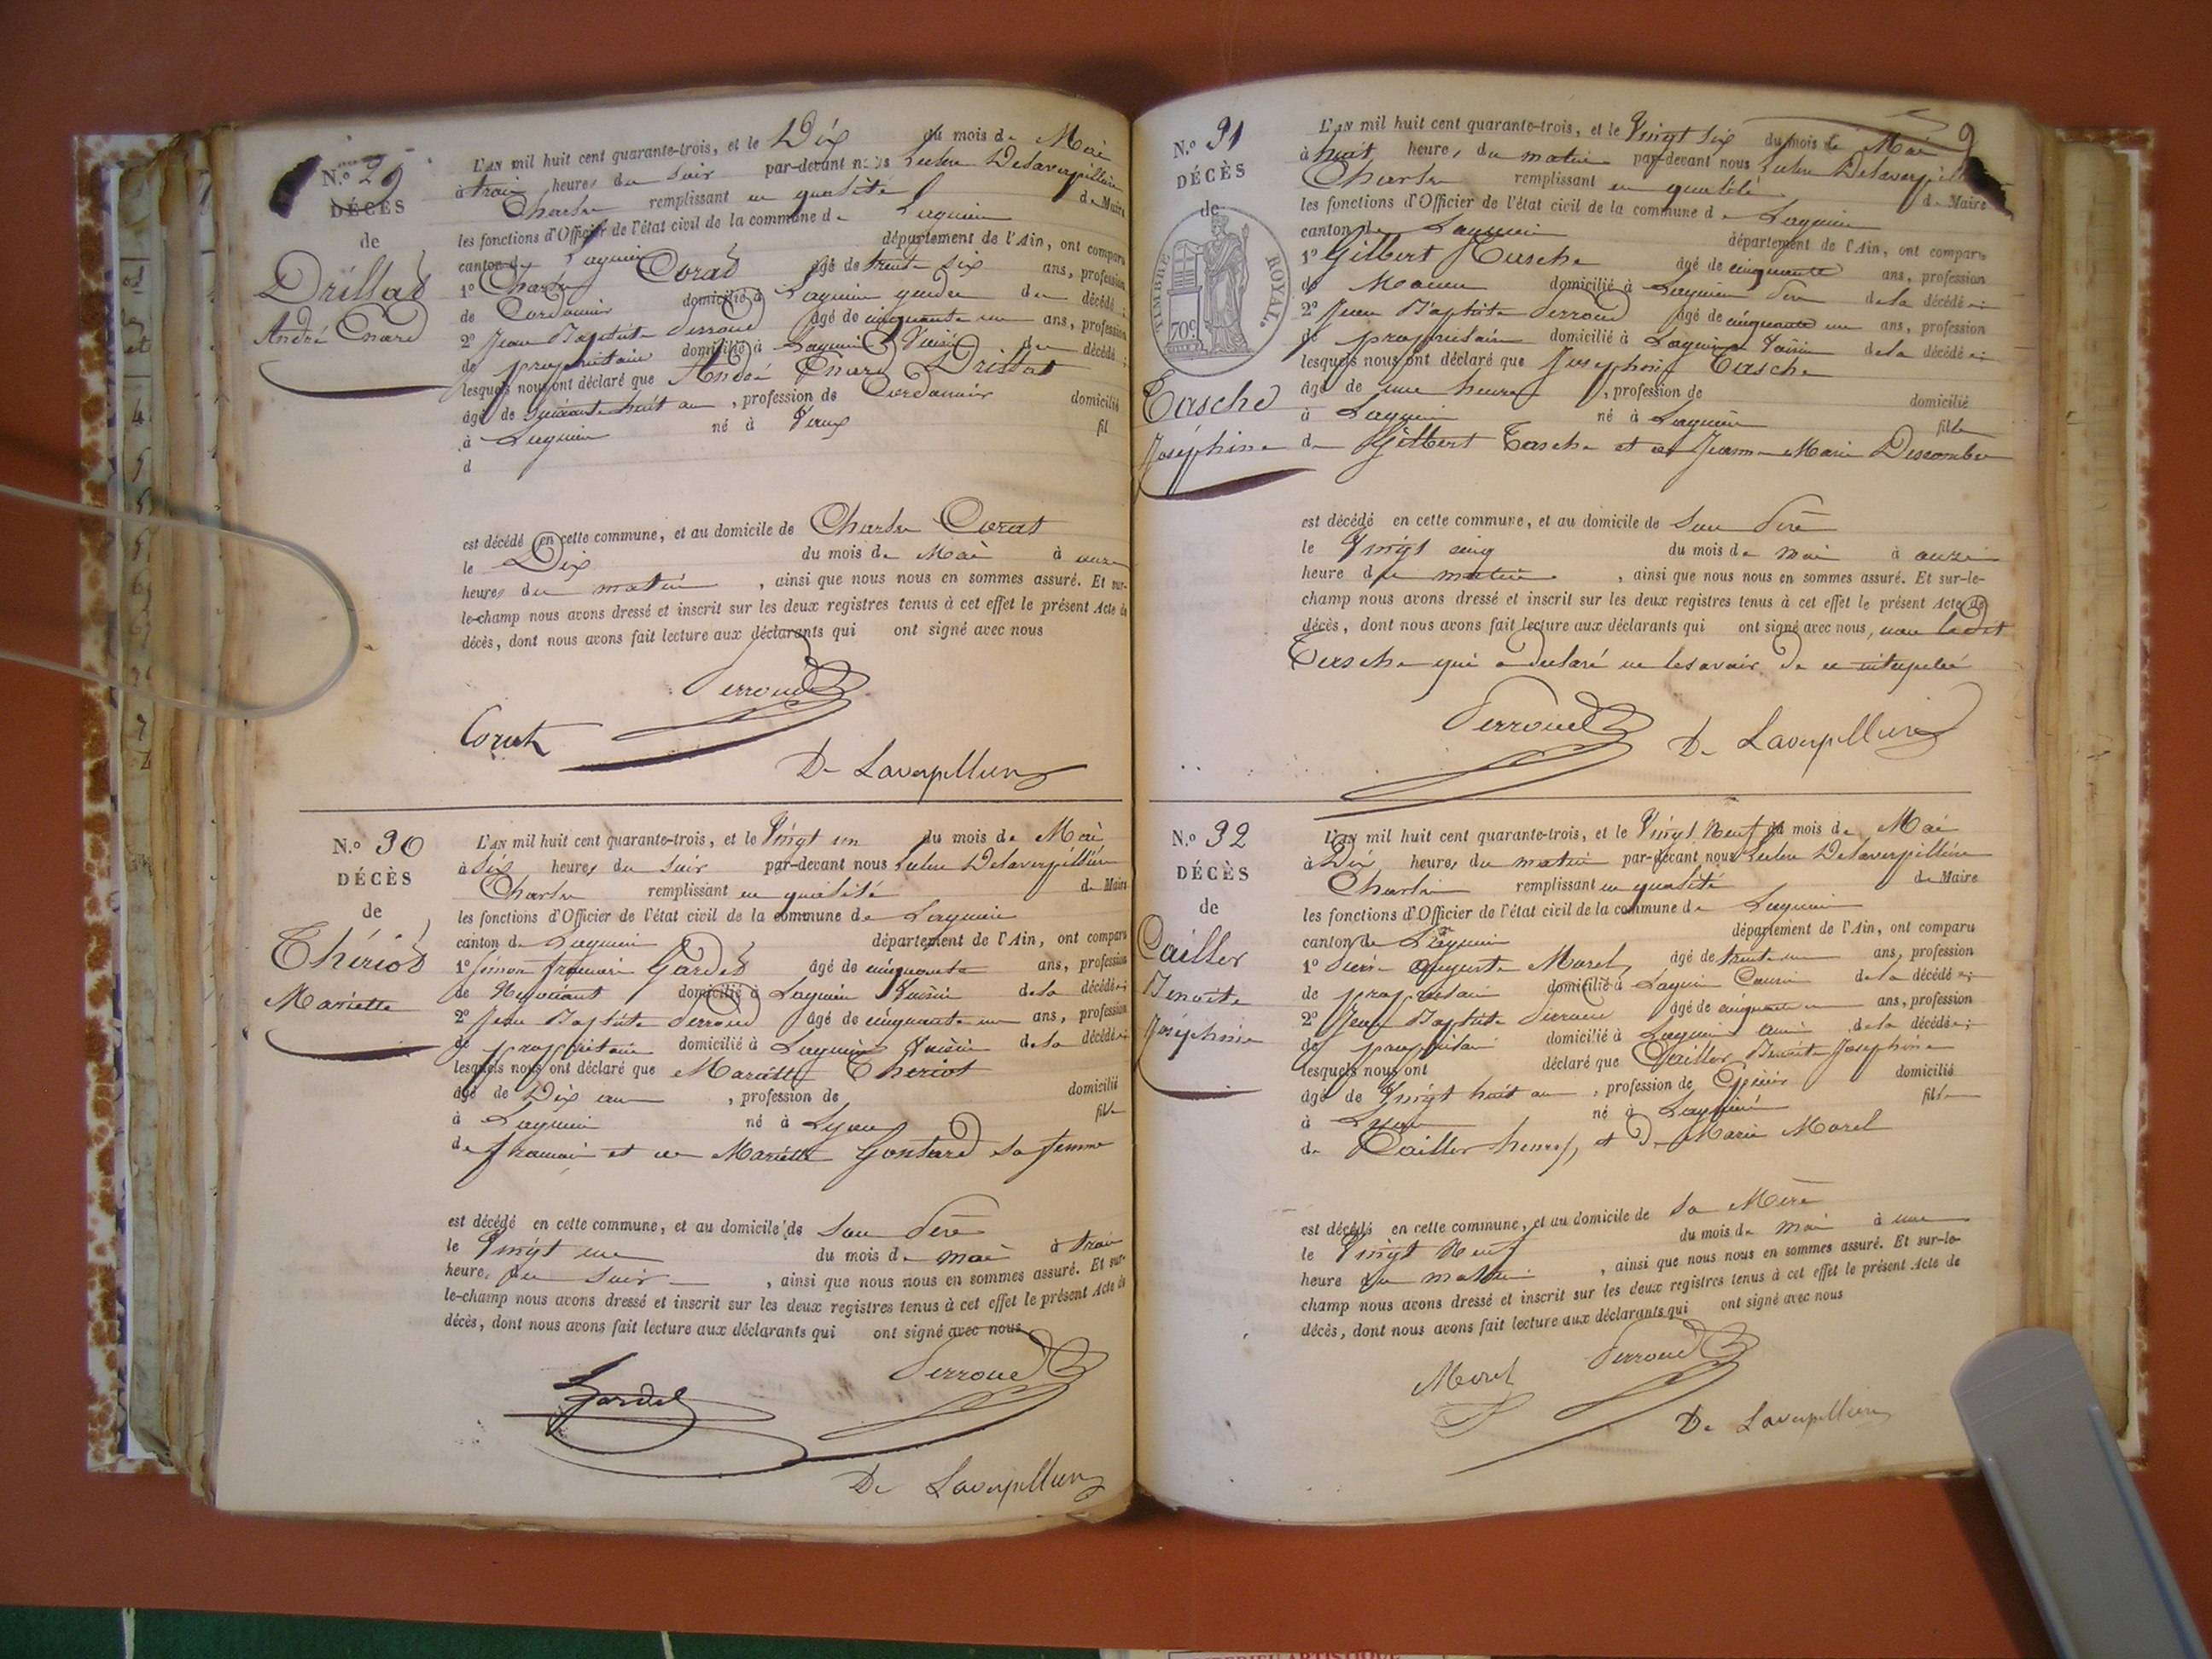 N.º 29
DÉCÈS
de
Drillat
André Enard
L'AN mil huit cent quarante-trois, et le Dix du mois de Mai
à trois heures du soir par-devant nous Delaverpillière
Charles remplissant en qualité de Maire
les fonctions d'Officier de l'état civil de la commune de Lagnieu
canton de Lagnieu département de l'Ain, ont comparu
1º Charles Corat âgé de trente six ans, profession
de Cordonnier domicilié à Lagnieu gendre du décédé;
2º Jean Baptiste Perroud âgé de cinquante un ans, profession
de propriétaire domicilié à Lagnieu Voisin du décédé;
lesquels nous ont déclaré que André Enard Drillat
âgé de huit ans, profession de Cordonnier domicilié
à Lagnieu né à Vaux fil
d
est décédé en cette commune, et au domicile de Charles Corat
le Dix du mois de Mai à onze
heures du matin, ainsi que nous nous en sommes assuré. Et sur-
le-champ nous avons dressé et inscrit sur les deux registres tenus à cet effet le présent Acte de
décès, dont nous avons fait lecture aux déclarants qui ont signé avec nous
Perroud
Corat
De Laverpilliere
N.º 30
DÉCÈS
de
Thériot
Mariette
L'AN mil huit cent quarante-trois, et le Vingt un du mois de Mai
à six heures du soir par-devant nous Delaverpillière
Charles remplissant en qualité de Maire
les fonctions d'Officier de l'état civil de la commune de Lagnieu
canton de Lagnieu département de l'Ain, ont comparu
1º Simon français Gardet âgé de cinquante ans, profession
de Négociant domicilié à Lagnieu Voisin de la décédée;
2º Jean Baptiste Perroud âgé de cinquante un ans, profession
de propriétaire domicilié à Lagnieu Voisin de la décédée;
lesquels nous ont déclaré que Mariette Theriot
âgé de Dix ans, profession de domicilié
à Lagnieu né à Lyon fille
de francois et de Mariette Gontard sa femme
est décédé en cette commune, et au domicile de son Père
le Vingt un du mois de mai à trois
heures du soir, ainsi que nous nous en sommes assuré. Et sur-
le-champ nous avons dressé et inscrit sur les deux registres tenus à cet effet le présent Acte de
décès, dont nous avons fait lecture aux déclarants qui ont signé avec nous
Perroud
Gardet
De Laverpilliere
9
N.º 31
DÉCÈS
de
TIMBRE ROYAL.
70c
Tasche
Joséphine
L'AN mil huit cent quarante-trois, et le Vingt six du mois de Mai
à huit heures du matin par-devant nous Delaverpillière
Charles remplissant en qualité de Maire
les fonctions d'Officier de l'état civil de la commune de Lagnieu
canton de Lagnieu département de l'Ain, ont comparu
1º Gilbert Tasche âgé de cinquante ans, profession
de Macon domicilié à Lagnieu Père de la décédée;
2º Jean Baptiste Perroud âgé de cinquante un ans, profession
de propriétaire domicilié à Lagnieu Voisin de la décédée;
lesquels nous ont déclaré que Josephine Tasche
âgé de une heure, profession de domicilié
à Lagnieu né à Lagnieu fille
de Gilbert Tasche et de Jeanne Marie Descombe
est décédé en cette commune, et au domicile de son Père
le Vingt cinq du mois de mai à onze
heure du matin, ainsi que nous nous en sommes assuré. Et sur-le-
champ nous avons dressé et inscrit sur les deux registres tenus à cet effet le présent Acte de
décès, dont nous avons fait lecture aux déclarants qui ont signé avec nous, non ledit
Tasche qui a déclaré ne le savoir De ce interpellé
Perroud
De Laverpilliere
N.º 32
DÉCÈS
de
Cailler
Benoite
Joséphine
L'AN mil huit cent quarante-trois, et le Vingt Neuf du mois de Mai
à Dix heures du matin par-devant nous Delaverpillière
Charles remplissant en qualité de Maire
les fonctions d'Officier de l'état civil de la commune de Lagnieu
canton de Lagnieu département de l'Ain, ont comparu
1º Pierre Auguste Morel âgé de trente un ans, profession
de propriétaire domicilié à Lagnieu Cousin de la décédée;
2º Jean Baptiste Perroud âgé de cinquante un ans, profession
de propriétaire domicilié à Lagnieu ami de la décédée;
lesquels nous ont déclaré que Cailler Benoite Josephine
âgé de Vingt huit ans, profession de domicilié
à Lyon né à Lagnieu fille
de Cailler henry, et De Marie Morel
est décédé en cette commune, et au domicile de sa Mère
le Vingt Neuf du mois de mai à une
heure du matin, ainsi que nous nous en sommes assuré. Et sur-le-
champ nous avons dressé et inscrit sur les deux registres tenus à cet effet le présent Acte de
décès, dont nous avons fait lecture aux déclarants qui ont signé avec nous
Morel
Perroud
De Laverpilliere